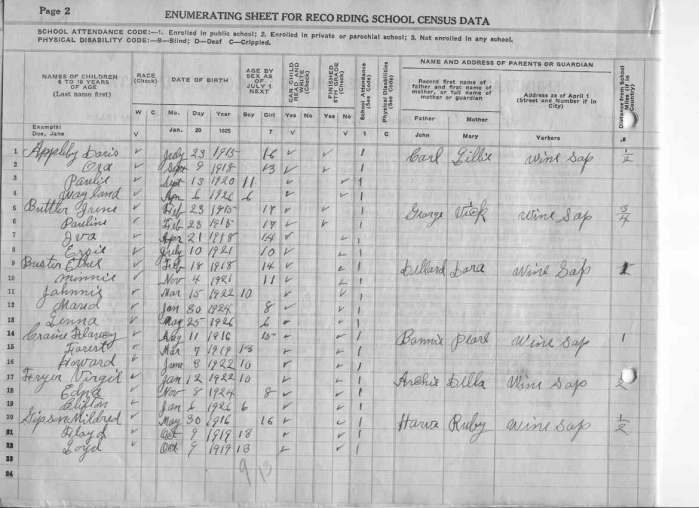 Page 2
ENUMERATING SHEET FOR RECORDING SCHOOL CENSUS DATA
SCHOOL ATTENDANCE CODE:—1. Enrolled in public school; 2. Enrolled in private or parochial school; 3. Not enrolled in any school.
PHYSICAL DISABILITY CODE:—B—Blind; D—Deaf C—Crippled.
NAMES OF CHILDREN 6 TO 18 YEARS OF AGE (Last name first)
RACE (Check)
DATE OF BIRTH
AGE BY SEX AS OF JULY 1 NEXT
CAN CHILD READ AND WRITE (Check)
FINISHED 8TH GRADE (Check)
School Attendance (See Code)
Physical Disabilities (See Code)
NAME AND ADDRESS OF PARENTS OR GUARDIAN
Record first name of father and first name of mother, or full name of mother or guardian
Address as of April 1 (Street one Number if in City)
Distance from School Miles (If in Country)
W C Mo. Day Year Boy Girl Yes No Yes No Father Mother
Example: Doe, Jane V Jan. 20 1925 7 V 1 C John Mary Yorkers .8
1 Appleby Doris ✓ July 23 1915 16 ✓ ✓ 1 Carl Gillie Wine Sap 1/2
2 Ora ✓ 9 1918 13 ✓ 1
3 ✓ Sept 13 1920 11 ✓ 1
4 Wayland ✓ Apr 6 1926 6 ✓ ✓ 1
5 Buttler Irene ✓ Feb 23 1915 17 ✓ ✓ 1 George Wine Sap 3/4
6 Pauline ✓ Feb 23 1915 17 ✓ ✓ 1
7 Iva ✓ Apr 21 1918 14 ✓ ✓ 1
8 ✓ July 10 1921 10 ✓ ✓ 1
9 Buster Ethel ✓ Feb 18 1918 14 ✓ ✓ 1 Dillard Dora Wine Sap
10 Minnie ✓ Nov 4 1921 11 ✓ ✓ 1
11 Johnnie ✓ Mar 15 1922 10 ✓ ✓ 1
12 ✓ Jan 30 1924 8 ✓ 1
13 Lenna ✓ May 25 1926 6 ✓ ✓ 1
14 Craine Harvey ✓ Aug 11 1916 15 ✓ ✓ 1 Bonnie Pearl Wine Sap 1
15 ✓ Mar 7 1919 13 ✓ ✓ 1
16 Howard ✓ June 8 1922 10 ✓ ✓ 1
17 Fryer Virgil ✓ Jan 12 1922 10 ✓ ✓ 1 Archie Della Wine Sap
18 Edna ✓ Nov 8 1924 8 ✓ ✓ 1
19 ✓ Jan 6 1926 6 ✓ ✓ 1
20 Gipson Mildred ✓ May 30 1916 16 ✓ ✓ 1 Ruby Wine Sap 1/2
21 Floyd ✓ Oct 9 1919 13 ✓ ✓ 1
22 Loyd ✓ Oct 9 1919 13 ✓ ✓ 1
23
24 9 13